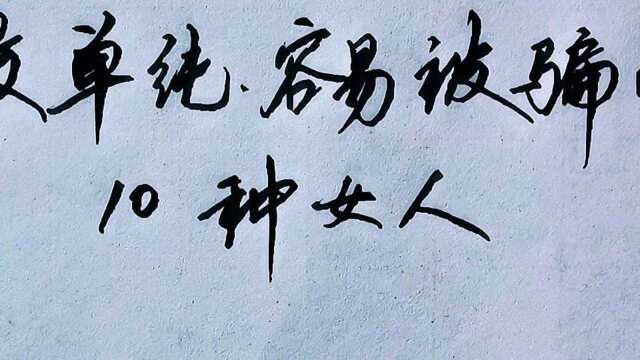 单纯.容易被骗
10种女人